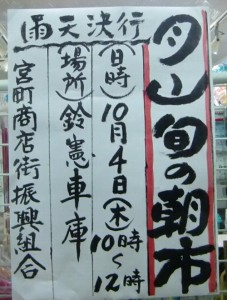 月山旬の朝市
(日時)10月4日(木)10時~12時
(場所)鈴憲車庫
雨天決行
宮町商店街振興組合